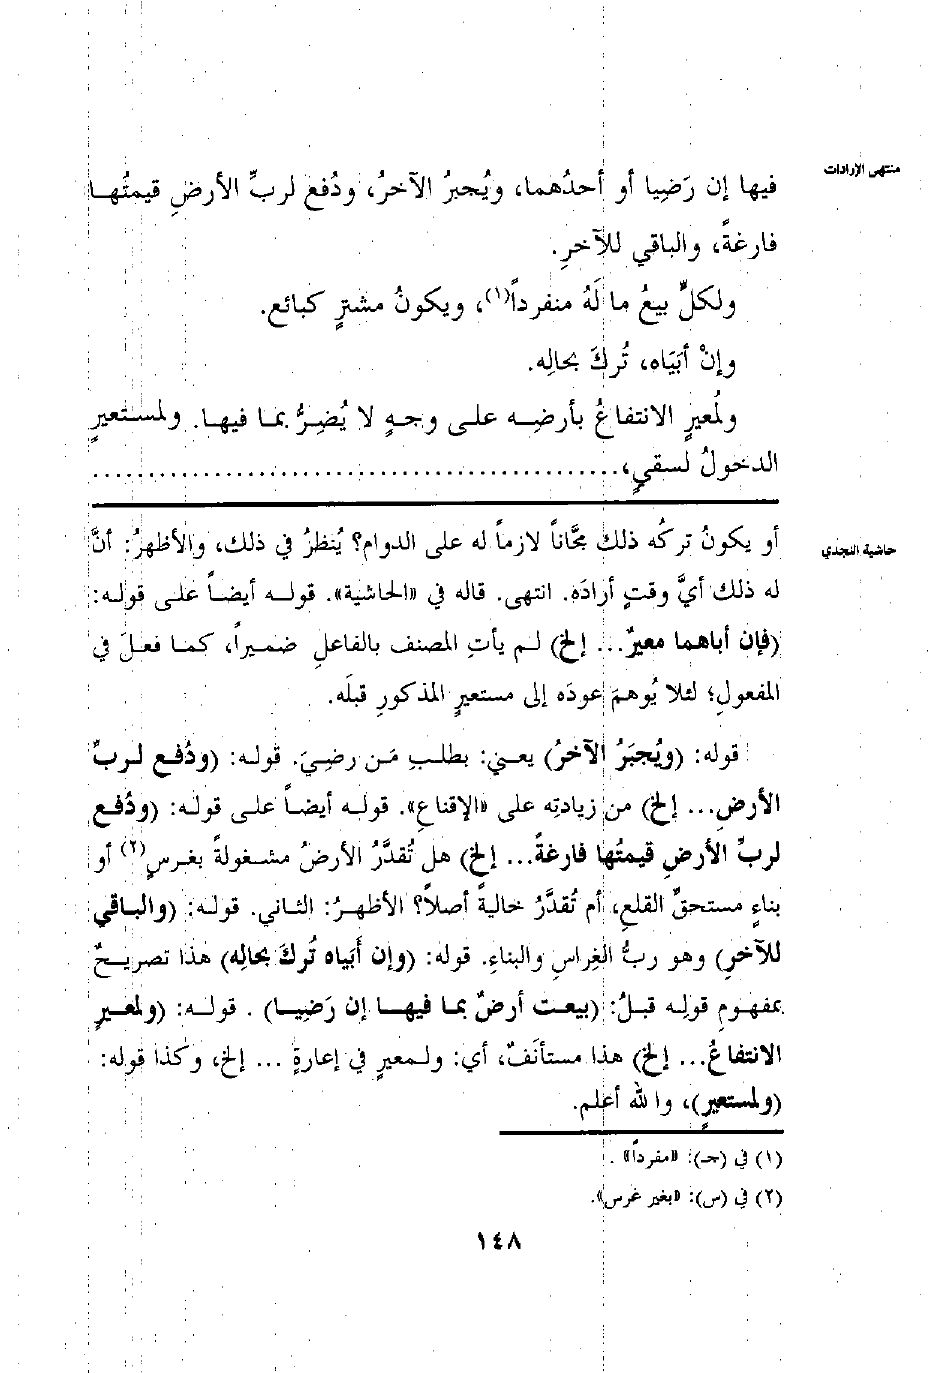 منتهى الإرادات
فيها إن رَضِيا أو أحدُهما، ويُجبرُ الآخرُ، ودُفع لربِّ الأرضِ قيمتُها
فارغةً، والباقي للآخرِ.
ولكلٍّ بيعُ ما لَهُ منفرداً(١)، ويكونُ مشترٍ كبائع.
وإنْ أبَيَاه، تُركَ بحالِه.
ولمُعيرٍ الانتفاعُ بأرضِه على وجهٍ لا يُضِرُّ بما فيها. ولمستعيرٍ
الدخولُ لسقيٍ، ........................................
حاشية النجدي
أو يكونُ تركُه ذلك مجَّاناً لازماً له على الدوام؟ يُنظرُ في ذلك، والأظهرُ: أنَّ
له ذلك أيَّ وقتٍ أرادَه. انتهى. قاله في «الحاشية». قوله أيضاً على قوله:
(فإن أباهما معيرٌ... إلخ) لم يأتِ المصنف بالفاعلِ ضميراً، كما فعلَ في
المفعولِ؛ لئلا يُوهمَ عودَه إلى مستعيرِ المذكورِ قبلَه.
قوله: (ويُجبَرُ الآخرُ) يعني: بطلبِ مَن رضيَ. قوله: (ودُفع لربِّ
الأرضِ... إلخ) من زيادتِه على «الإقناعِ». قوله أيضاً على قوله: (ودُفع
لربِّ الأرضِ قيمتُها فارغةً... إلخ) هل تُقدَّرُ الأرضُ مشغولةً بغرسٍ(٢) أو
بناءٍ مستحقِّ القلعِ، أم تُقدَّرُ خاليةً أصلاً؟ الأظهرُ: الثاني. قوله: (والباقي
للآخرِ) وهو ربُّ الغِراسِ والبناءِ. قوله: (وإن أَبَياه تُركَ بحالِه) هذا تصريحٌ
بمفهومِ قولِه قبلُ: (بيعت أرضٌ بما فيها إن رَضِيا) . قوله: (ولمعيرٍ
الانتفاعُ... إلخ) هذا مستأنَفٌ، أي: ولمعيرٍ في إعارةٍ ... إلخ، وكذا قوله:
(ولمستعيرٍ)، والله أعلم.
(١) في (حـ): «مفرداً» .
(٢) في (س): «بغير غرس».
١٤٨